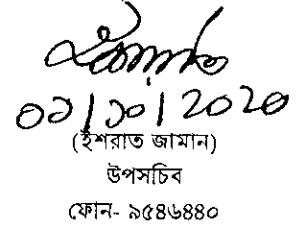 ০১/১০/2020
(ইশরাত জামান)
উপসচিব
ফোন- ৯৫৪৬৪৪০